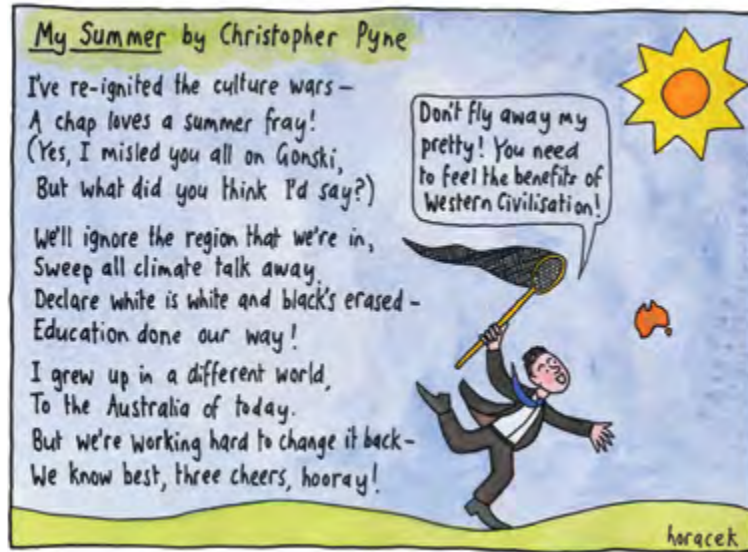 My Summer by Christopher Pyne
I've re-ignited the culture wars –
A chap loves a summer fray!
(Yes, I misled you all on Gonski,
But what did you think I'd say?)
We'll ignore the region that we're in,
Sweep all climate talk away.
Declare white is white and black's erased –
Education done our way!
I grew up in a different world,
To the Australia of today.
But we're working hard to change it back –
We know best, three cheers, hooray!
Don't fly away my
pretty! You need
to feel the benefits of
Western Civilisation!
horacek